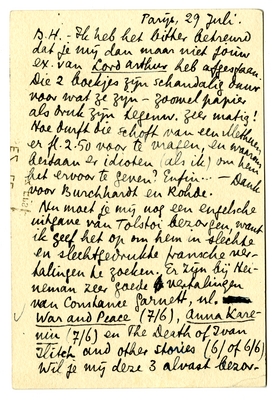 Parijs, 29 Juli.
B.H. – Ik heb het bitter betreurd
dat je mij dan maar niet jouw
ex. van Lord Arthur heb afgestaan.
Die 2 boekjes zijn schandalig duur
voor wat ze zijn – zoowel papier
als druk zijn tegenw. zeer matig!
Hoe durft die schoft van een
er fl. 2.50 voor te vragen, en waarom
bestaan er idioten (als ik) om hem
het ervoor te geven! Enfin... – Dank
voor Burchhardt en Rohde.
Nu moet je mij nog een engelsche
uitgave van Tolstoi bezorgen, want
ik geef het op om hem in slechte
en slechtgedrukte fransche ver-
talingen te zoeken. Er zijn bij Hei-
neman zeer goede vertalingen
van Constance Garnett, nl.
War and Peace (7/6), Anna Kare-
nin (7/6) en The Death of Ivan
Ilitch and other stories (6/ of 6/6)
Wil je mij deze 3 alvast bezor-